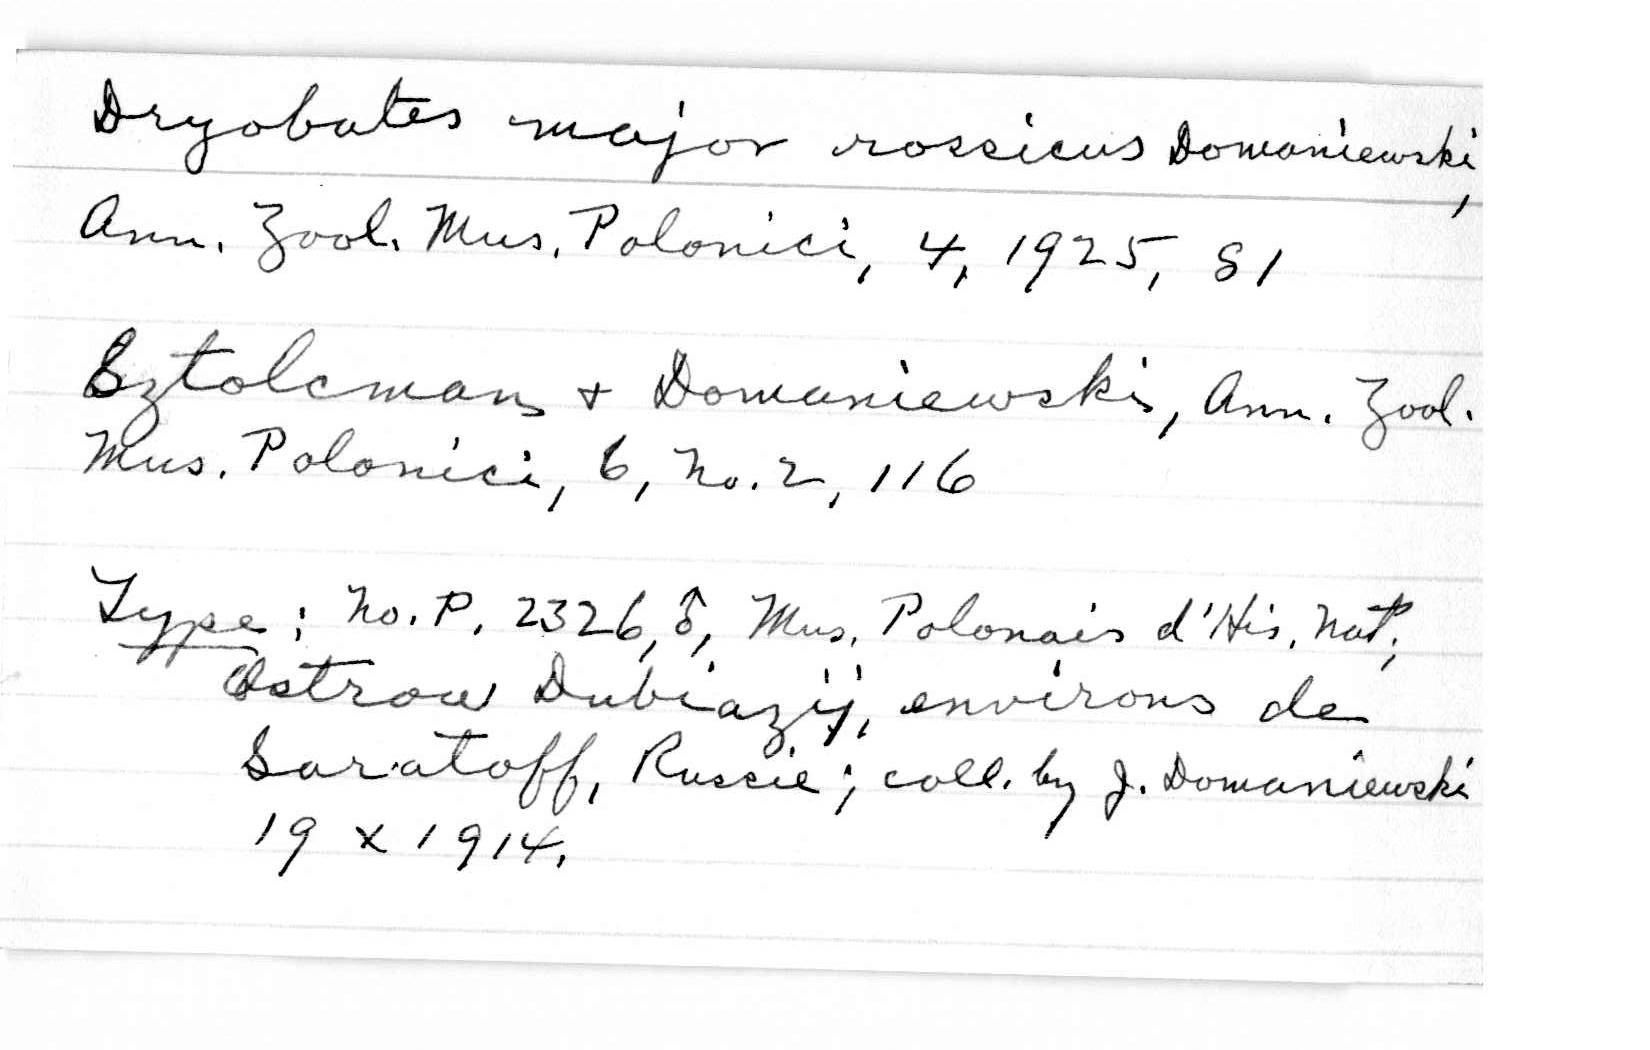 Dryobates major rossicus Domaniewski,
Ann. Zool. Mus. Polonici, 4, 1925, 81
Sztolcman & Domaniewski, Ann. Zool.
Mus. Polonici, 6, No. 2, 116
Type: No. P. 2326, ♂, Mus. Polonais d'His. Nat;
Ostrow Dubiazij, environs de
Saratoff, Russie; coll. by J. Domaniewski
19 X 1914.